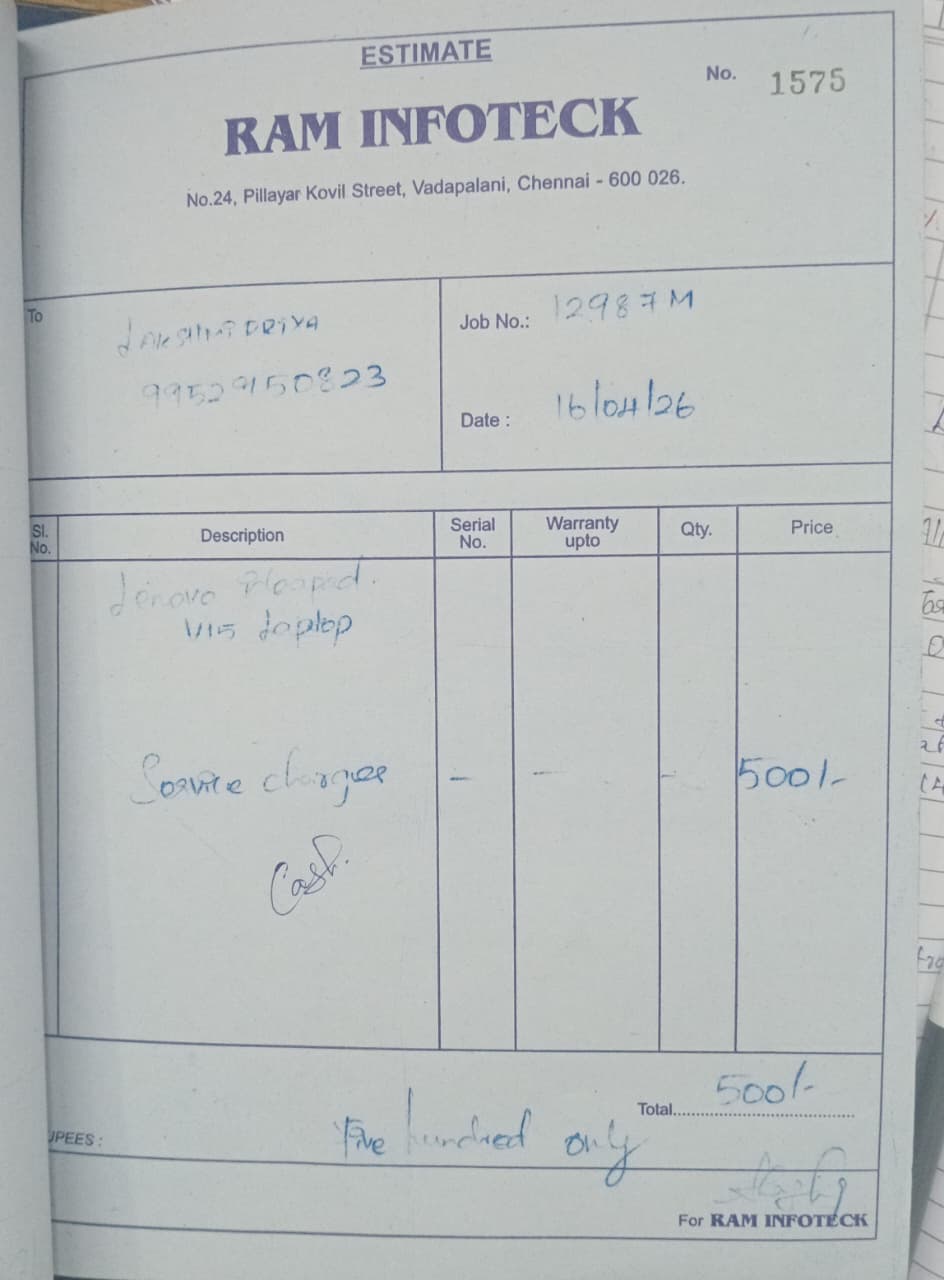 ESTIMATE
No. 1575
RAM INFOTECK
No.24, Pillayar Kovil Street, Vadapalani, Chennai - 600 026.
To
LAKSHMIPRIYA
99529150823
Job No.: 12987M
Date : 16/04/26
Sl. No. Description Serial No. Warranty upto Qty. Price
Lenovo
V15 Laptop
Service charges - - - 500/-
Cash.
Total 500/-
UPEES : Five hundred only
For RAM INFOTECK